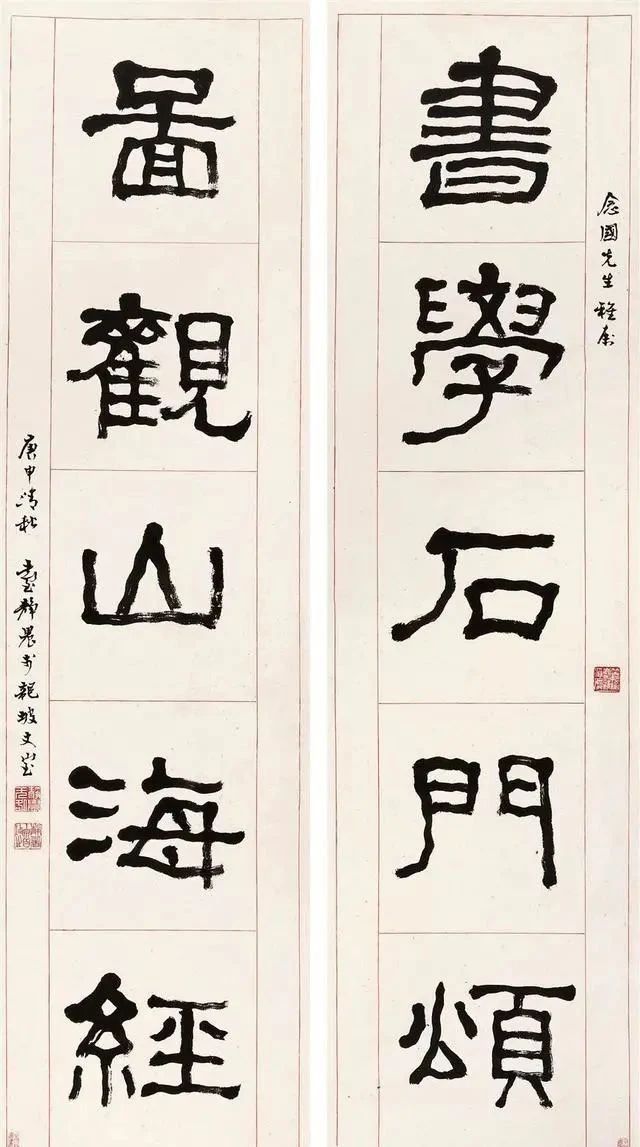 書學石門頌
念國先生雅屬
圖觀山海經
庚申清秋 臺靜農於龍坡丈室